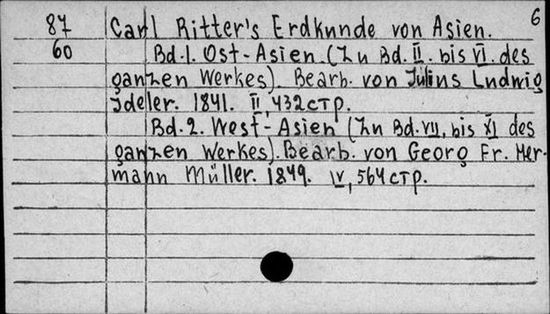 6
87 Carl Ritter's Erdkunde von Asien.
60 Bd.1. Ost-Asien (Zu Bd. II. bis VI. des
ganzen Werkes). Bearb. von Julius Ludwig
Ideler. 1841. II, 432 стр.
Bd.2. West-Asien (Zu Bd. VII, bis XI des
ganzen Werkes). Bearb. von Georg Fr. Her-
mann Müller. 1849. IV, 564 стр.